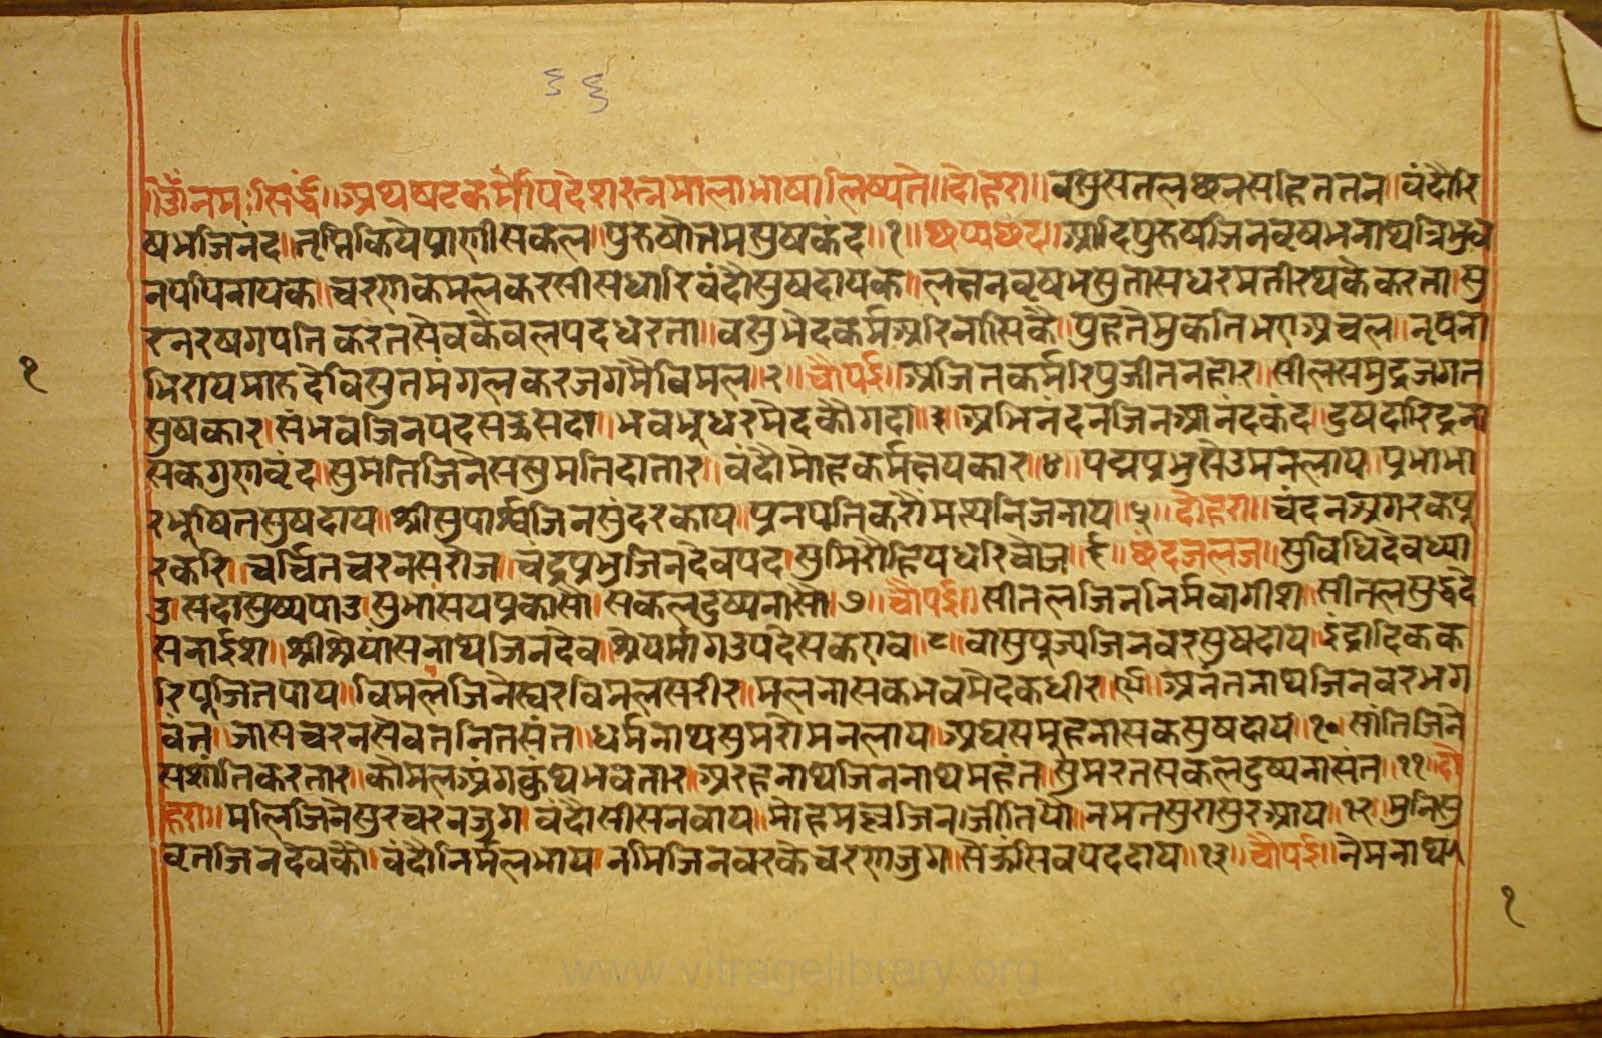 ६६
॥ॐनमःसिद्धं॥अथषटकर्मोपदेशरत्नमालाभाषालिष्यते॥दोहरा॥वसुसतलछनसहिततन॥वंदौरि
षभजिनंद॥तृप्तिकियेप्राणीसकल॥पुरुषोत्तमसुषकंद॥१॥छप्पयछंद॥आदिपुरुषजिनवृषभनाथत्रिभुव
नपापिनायक॥चरणकमलकरसीसधारिवंदौसुषदायक॥लक्षनवृषभसुतासधरमतीरथकेकरता॥सु
रनरषगपतिकरतसेवकेवलपदधरता॥वसुभेदकर्मअरिनासिकै॥पुहतेमुकतिभएअचल॥नृपना
भिरायमारुदेविसुतमंगलकरजगमैविमल॥२॥चौपई॥अजितकर्मरिपुजीतनहार॥सीलसमुद्रजगत
सुषकार॥संभवजिनपदसरूसदा॥भवभुधरभेदकौगदा॥३॥अभिनंदनजिनआनंदकंद॥दुषदारिद्रना
सकगुणवृंद॥सुमतिजिनेससुमतिदातार॥वंदौमोहकर्मक्षयकार॥४॥पद्मप्रभुसेउमनलाय॥प्रभाभा
रभुषितसुषदाय॥श्रीसुपार्श्वजिनसुंदरकाय॥प्रनपतिकरौंमत्यनिजनाय॥५॥दोहरा॥चंदनअगरकपु
रकरि॥चर्चितचरनसरोज॥चंद्रप्रभुजिनदेवपद॥सुमिरौहियधरिचोज॥६॥छंदजलज॥सुविधिदेवध्या
उसदासुष्यपाउ॥सुभासयप्रकासो॥सकलदुष्यनासो॥७॥चौपई॥सीतलजिननिर्मवागीश॥सीतलसुद्धदे
सनाईश॥श्रीश्रेयांसनाथजिनदेव॥श्रेयमार्गउपदेसकराव॥८॥वासुपुज्यजिनवरसुषदाय॥इंद्रादिकक
रिपुजितपाय॥विमलजिनेस्वरविमलसरीर॥मलनासकभवभेदकधीर॥९॥अनंतनाथजिनवरभग
वंत॥जासचरनसेवतनितसंत॥धर्मनाथसुमरौमनलाय॥अघसमुहनासकसुषदाय॥१०॥सांतिजिने
सशांतिकरतार॥कोमलअंगकुंथभवतार॥अरहनाथजिननाथमहंत॥सुमरतसकलदुष्यनासंत॥११॥दो
हरा॥मलिजिनेसुरचरनजुग॥वंदौसीसनवाय॥मोहमल्लजिनजीतियौ॥नमतसुरासुरआय॥१२॥मुनिसु
वृतजिनदेवकौ॥वंदौनिर्मलभाय॥नमिजिनवरकेचरणजुग॥सेऊंसिवपददाय॥१३॥चौपई॥नेमनाथ
१
१
www.vitragelibrary.org